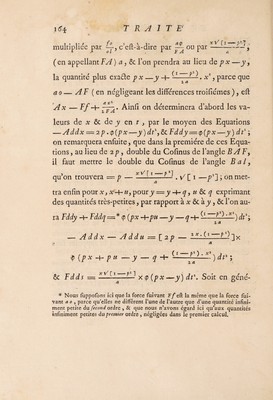 164 TRAITÉ
multipliée par fo/nf, c'est-à-dire par ao/FA ou par xx√(1-p²)/a,
(en appellant FA) a, & l'on prendra au lieu de px-y,
la quantité plus exacte px-y+(1-p²)/2a.x², parce que
ao-AF (en négligeant les différences troisiémes), est
Ax-Ff+ax²/2FA. Ainsi on déterminera d'abord les va-
leurs de x & de y en t, par le moyen des Equations
-Addx=2p.φ(px-y)dt², & Fddy=φ(px-y)dt²;
on remarquera ensuite, que dans la premiére de ces Equa-
tions, au lieu de 2p, double du Cosinus de l'angle BAF,
il faut mettre le double du Cosinus de l'angle Bal,
qu'on trouvera =p-x√(1-p²)/a.√[1-p²]; on met-
tra enfin pour x, x+u, pour y=y+q, u & q exprimant
des quantités très-petites, par rapport à x & à y, & l'on au-
ra Fddy+Fddq=*φ(px+pu-y-q+(1-p²).x²/2a)dt²;
-Addx-Addu=[2p-2x.(1-p²)/a]×
φ(px+pu-y-q+(1-p²).x²/2a)dt²;
& Fdds=x√(1-p²)/a×φ(px-y)dt². Soit en géné-
* Nous supposons ici que la force suivant Ff est la même que la force sui-
vant ao, parce qu'elles ne différent l'une de l'autre que d'une quantité infini-
ment petite du second ordre, & que nous n'avons égard ici qu'aux quantités
infiniment petites du premier ordre, négligées dans le premier calcul.